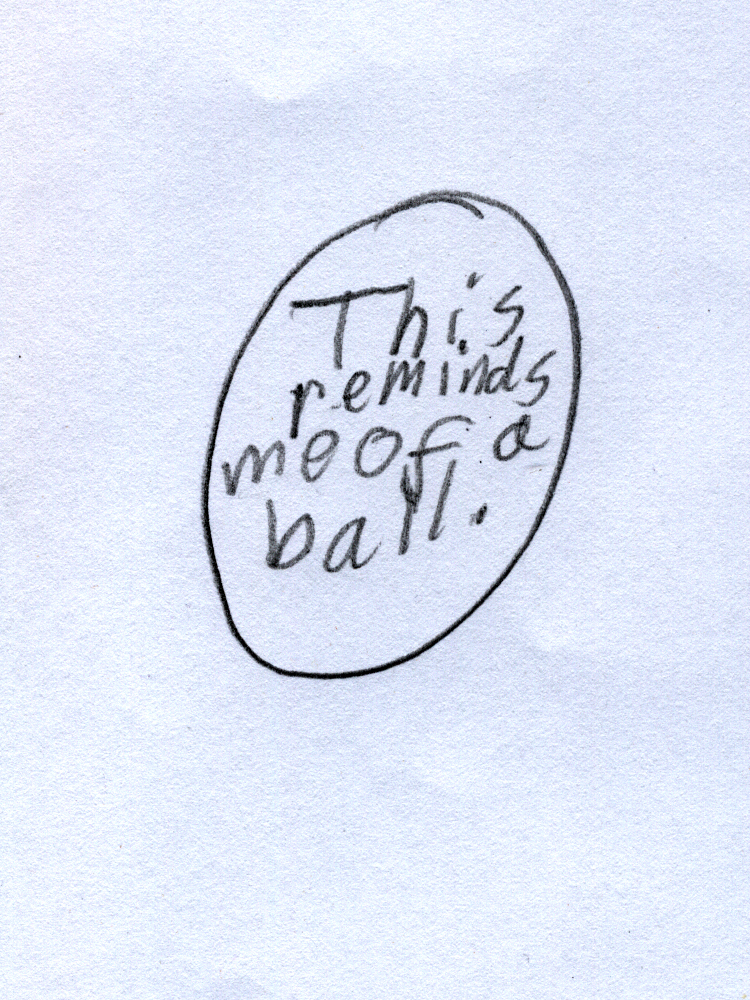 This
reminds
me of a
ball.